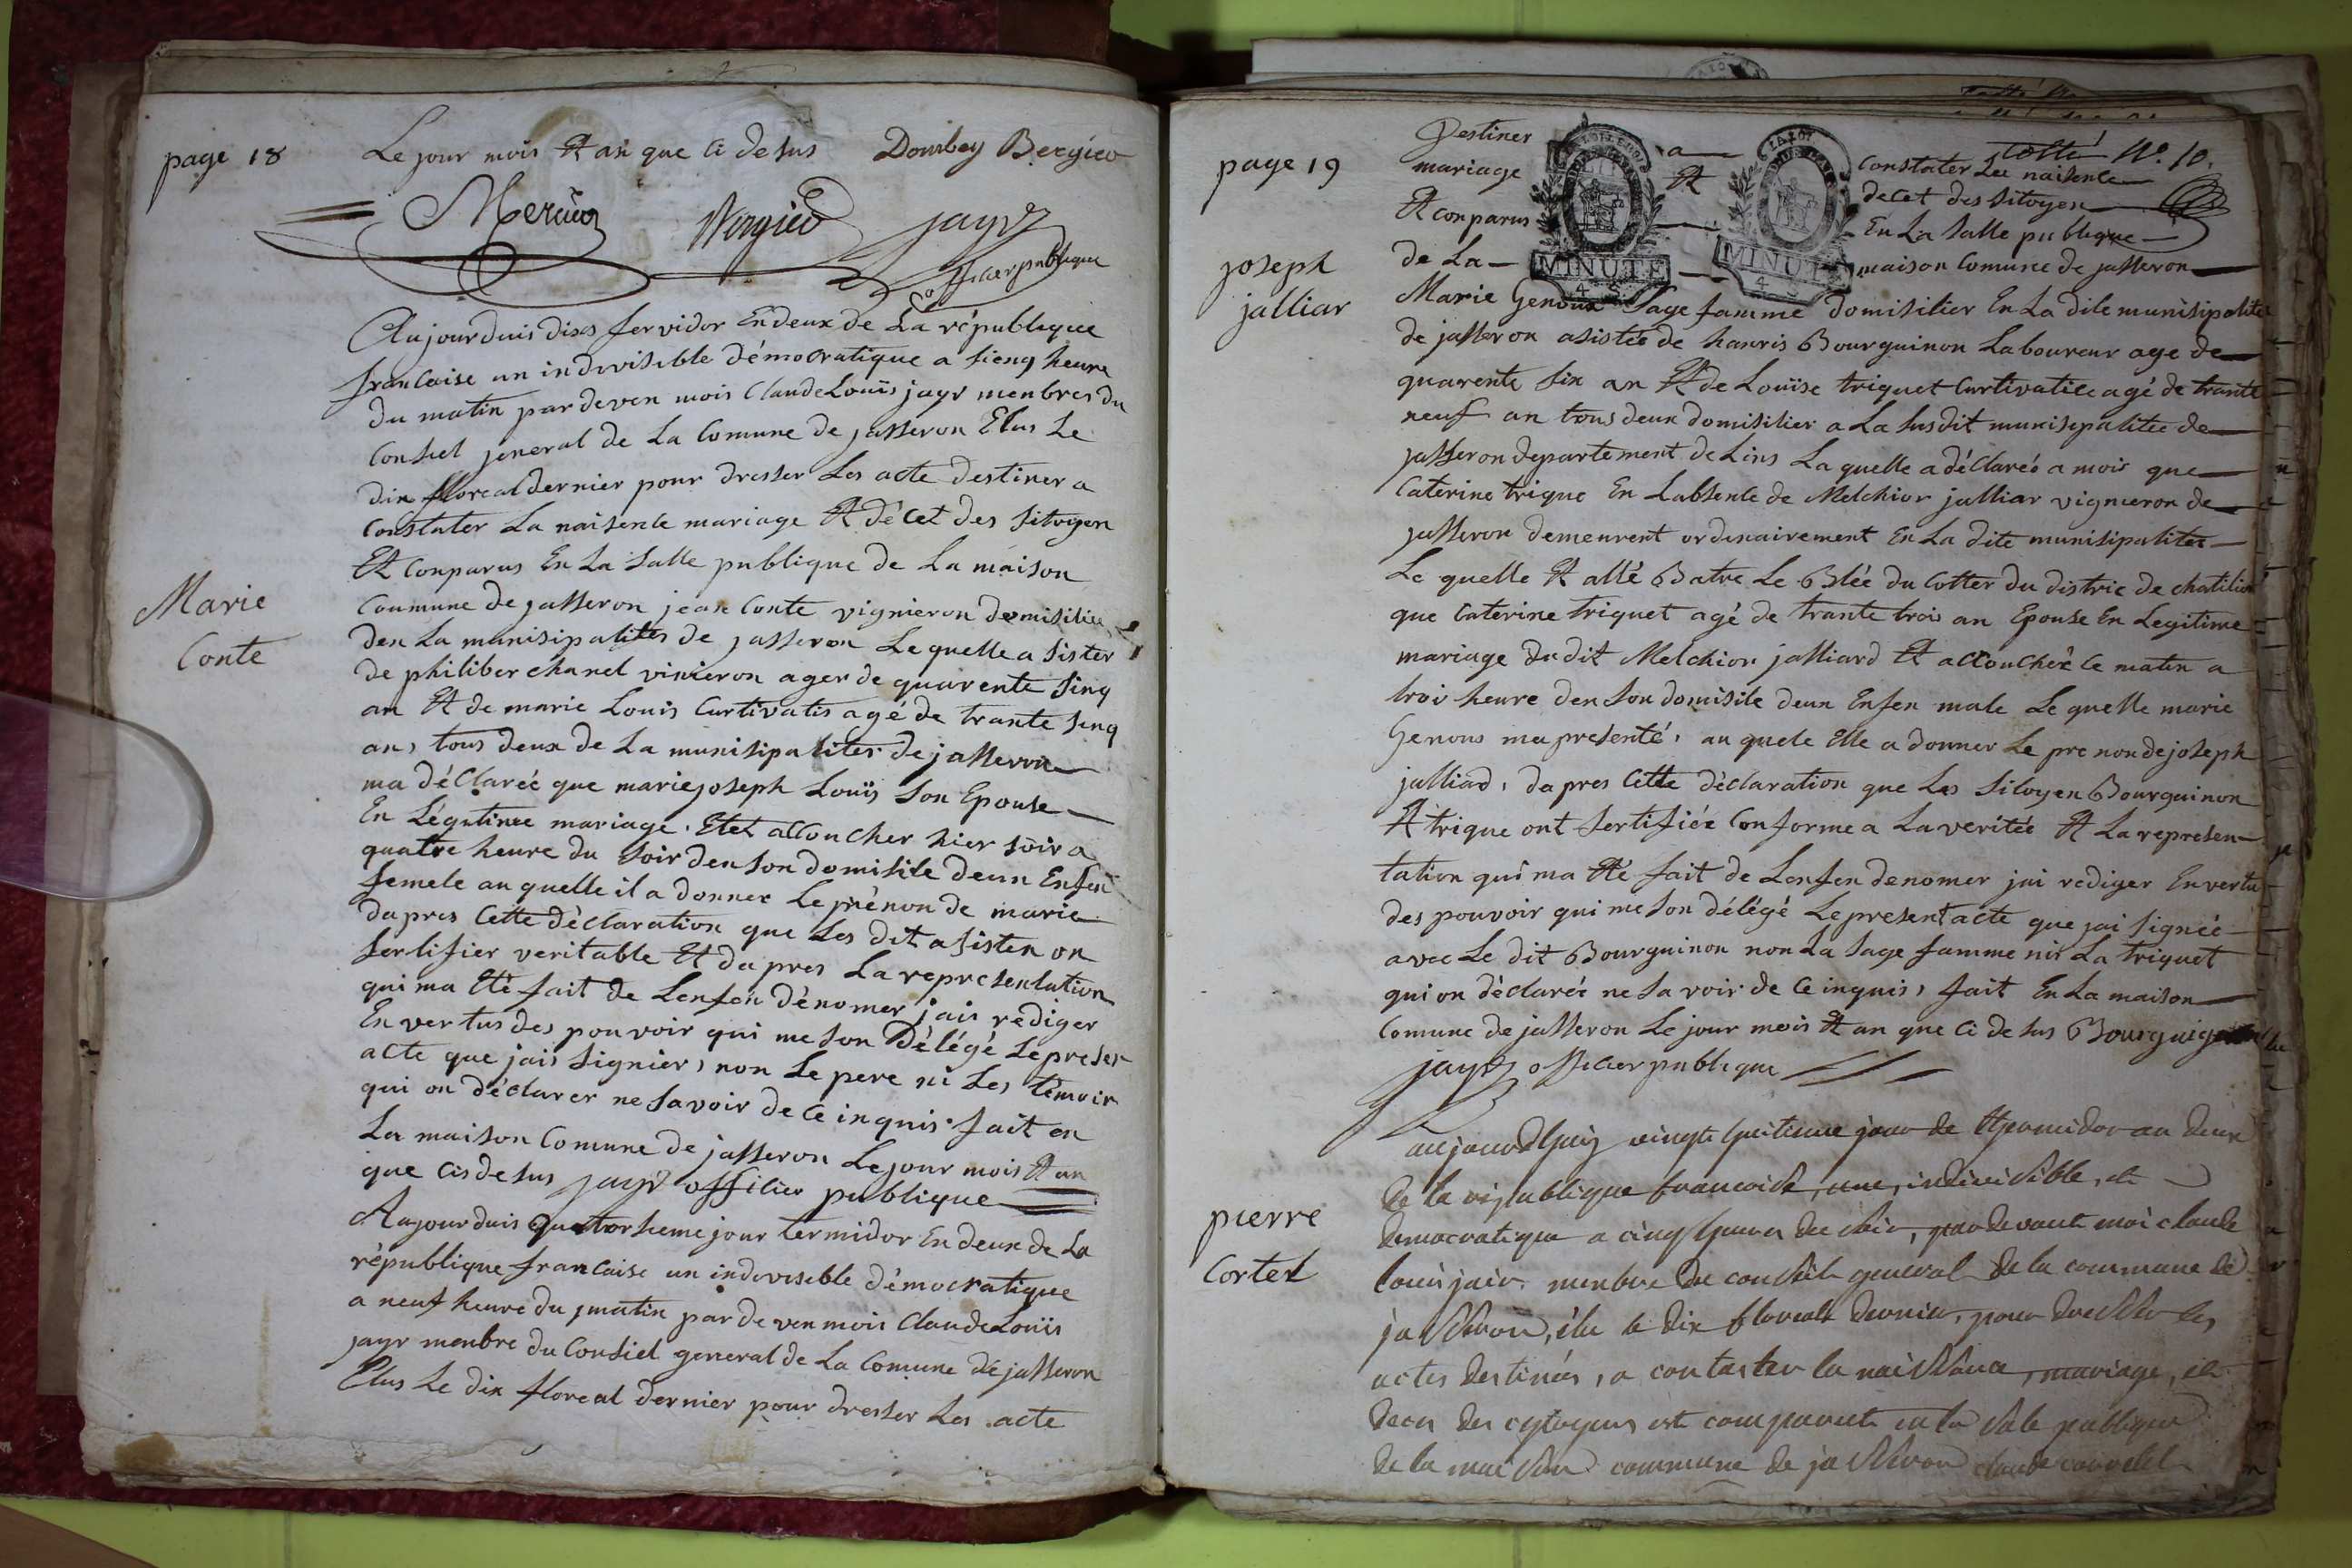 page 18
Le jour mois Et an que Ci desus Dombey Bergier
Mercier Vergier jayr
officier publique
Aujourduis dises fervidor En deux de La république
francaise un indivisible démocratique a sienq heure
du matin par deven mois Claude Louis jayr menbres du
Conseil jeneral de La Comune de jasseron Elus Le
dix floreal dernier pour dresser Les acte destiner a
Constater La naisence mariage Et décet des sitoyen
Et Conparus En La salle publique de La maison
Marie
Conte
Coumune de jasseron jean Conte vignieron domisilier
den La munisipalites de jasseron Le quelle a sister
de philiber chanel vinieron ager de quarente sinq
an Et de marie Louis Curtivatis agé de trante senq
an, tous deux de La munisipalites de jasseron
ma déClareé que marie joseph Louis son Epouse
En Légitime mariage. Etet accoucher hier soir a
quatre heure du soir den son domisile deun Enfen
femele au quelle il a donner Le prénon de marie
dapres Cette déclaration que Les dit asisten on
sertifier veritable Et dapres La representation
qui ma Eté fait de Lenfen dénomer jais rediger
En vertus des pouvoir qui me son délégé Le presen
acte que jais signier, non Le pere ni Les témoin
qui on déclarer ne savoir de Ce inquis. fait en
La maison Comune de jasseron Le jour mois Et an
que Cisdesus jayr offisier publique
Aujourduis quatorsieme jour termidor En deux de La
république francaise un indovisible démocratique
a neuf heure du matin par deven mois Claude Louis
jayr menbre du Consiel general de La Comune de jasseron
Elus Le dix floreal dernier pour dresser Les acte
page 19
Cotté N°. 10.
Destiner a Constater Lee naisence
mariage Et decet des sitoyen
Et conparus En La salle publique
de La maison Comune de jasseron
MINUTE
4 S
MINUTE
4 S
joseph
jalliar
Marie Genoux sage famme domisilier En La dite munisipalite
de jasseron asistée de hanris Bourguinon Laboureur age de
quarente six an Et de Louise triquet Curtivatice agé de trante
neuf an tous deux domisilier a La susdit munisipalitée de
jasseron departement de Lins La quelle a déClareé a mois que
Caterine trique En Labsence de Melchior jalliar vignieron de
jasseron demeurent ordinairement En La dite munisipalites
Le quelle Et allé Batre Le Blée du Cotter du distric de chatilion
que Caterine triquet agé de trante trois an Epouse En Legitime
mariage du dit Melchior jalliard Et accouchéé Ce matin a
trois heure den son domisile deun Enfen male Le quelle marie
Genous ma presenté, au quele Elle a donner Le pre non de joseph
julliad, dapres Cette déclaration que Les sitoyen Bourguinon
Et trique ont sertifiée Conforme a La veritée Et La represen-
tation qui ma Eté fait de Lenfen denomer jai rediger En vertu
des pouvoir qui me son délégé Le present acte que jai signée
avec Le dit Bourguinon non La sage famme nis La triquet
qui on déclarée ne savoir de Ce inquis, fait En La maison
Comune de jasseron Le jour mois Et an que Ci desus Bourguignon
jayr officier publique
pierre
Cortet
aujourd'huiy vingt huitieme jour de thermidor an deux
de la republique francoise, une, indivisible, et
democratique a cinq heures du soir, pardevant moi claude
louis jair menbre du conseil general de la commune de
jasseron, élu le dix floreal dernier, pour dresser les
actes destinés, a contaster la naissance, mariage, et
deces des cytoyens est comparut en la sale publique
de la maison commune de jasseron claude